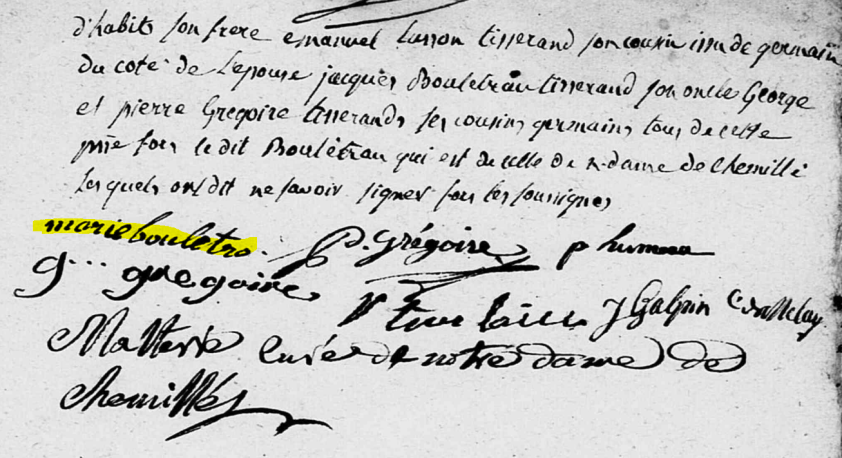 d'habits son frere emanuel Lusson tisserand son cousin issu de germain
du coté de L'epouse jacques Bouletrau tisserand son oncle George
et pierre Grégoire tisserands ses cousins germains tous de cette
psse fors le dit Boulétrau qui est de celle de n-dame de chemillé
Lesquels ont dit ne savoir signer fors les soussignes
marie bouletro P. Grégoire p humeau
g... gregoire
J Galpin
curé de notre dame de
chemillés